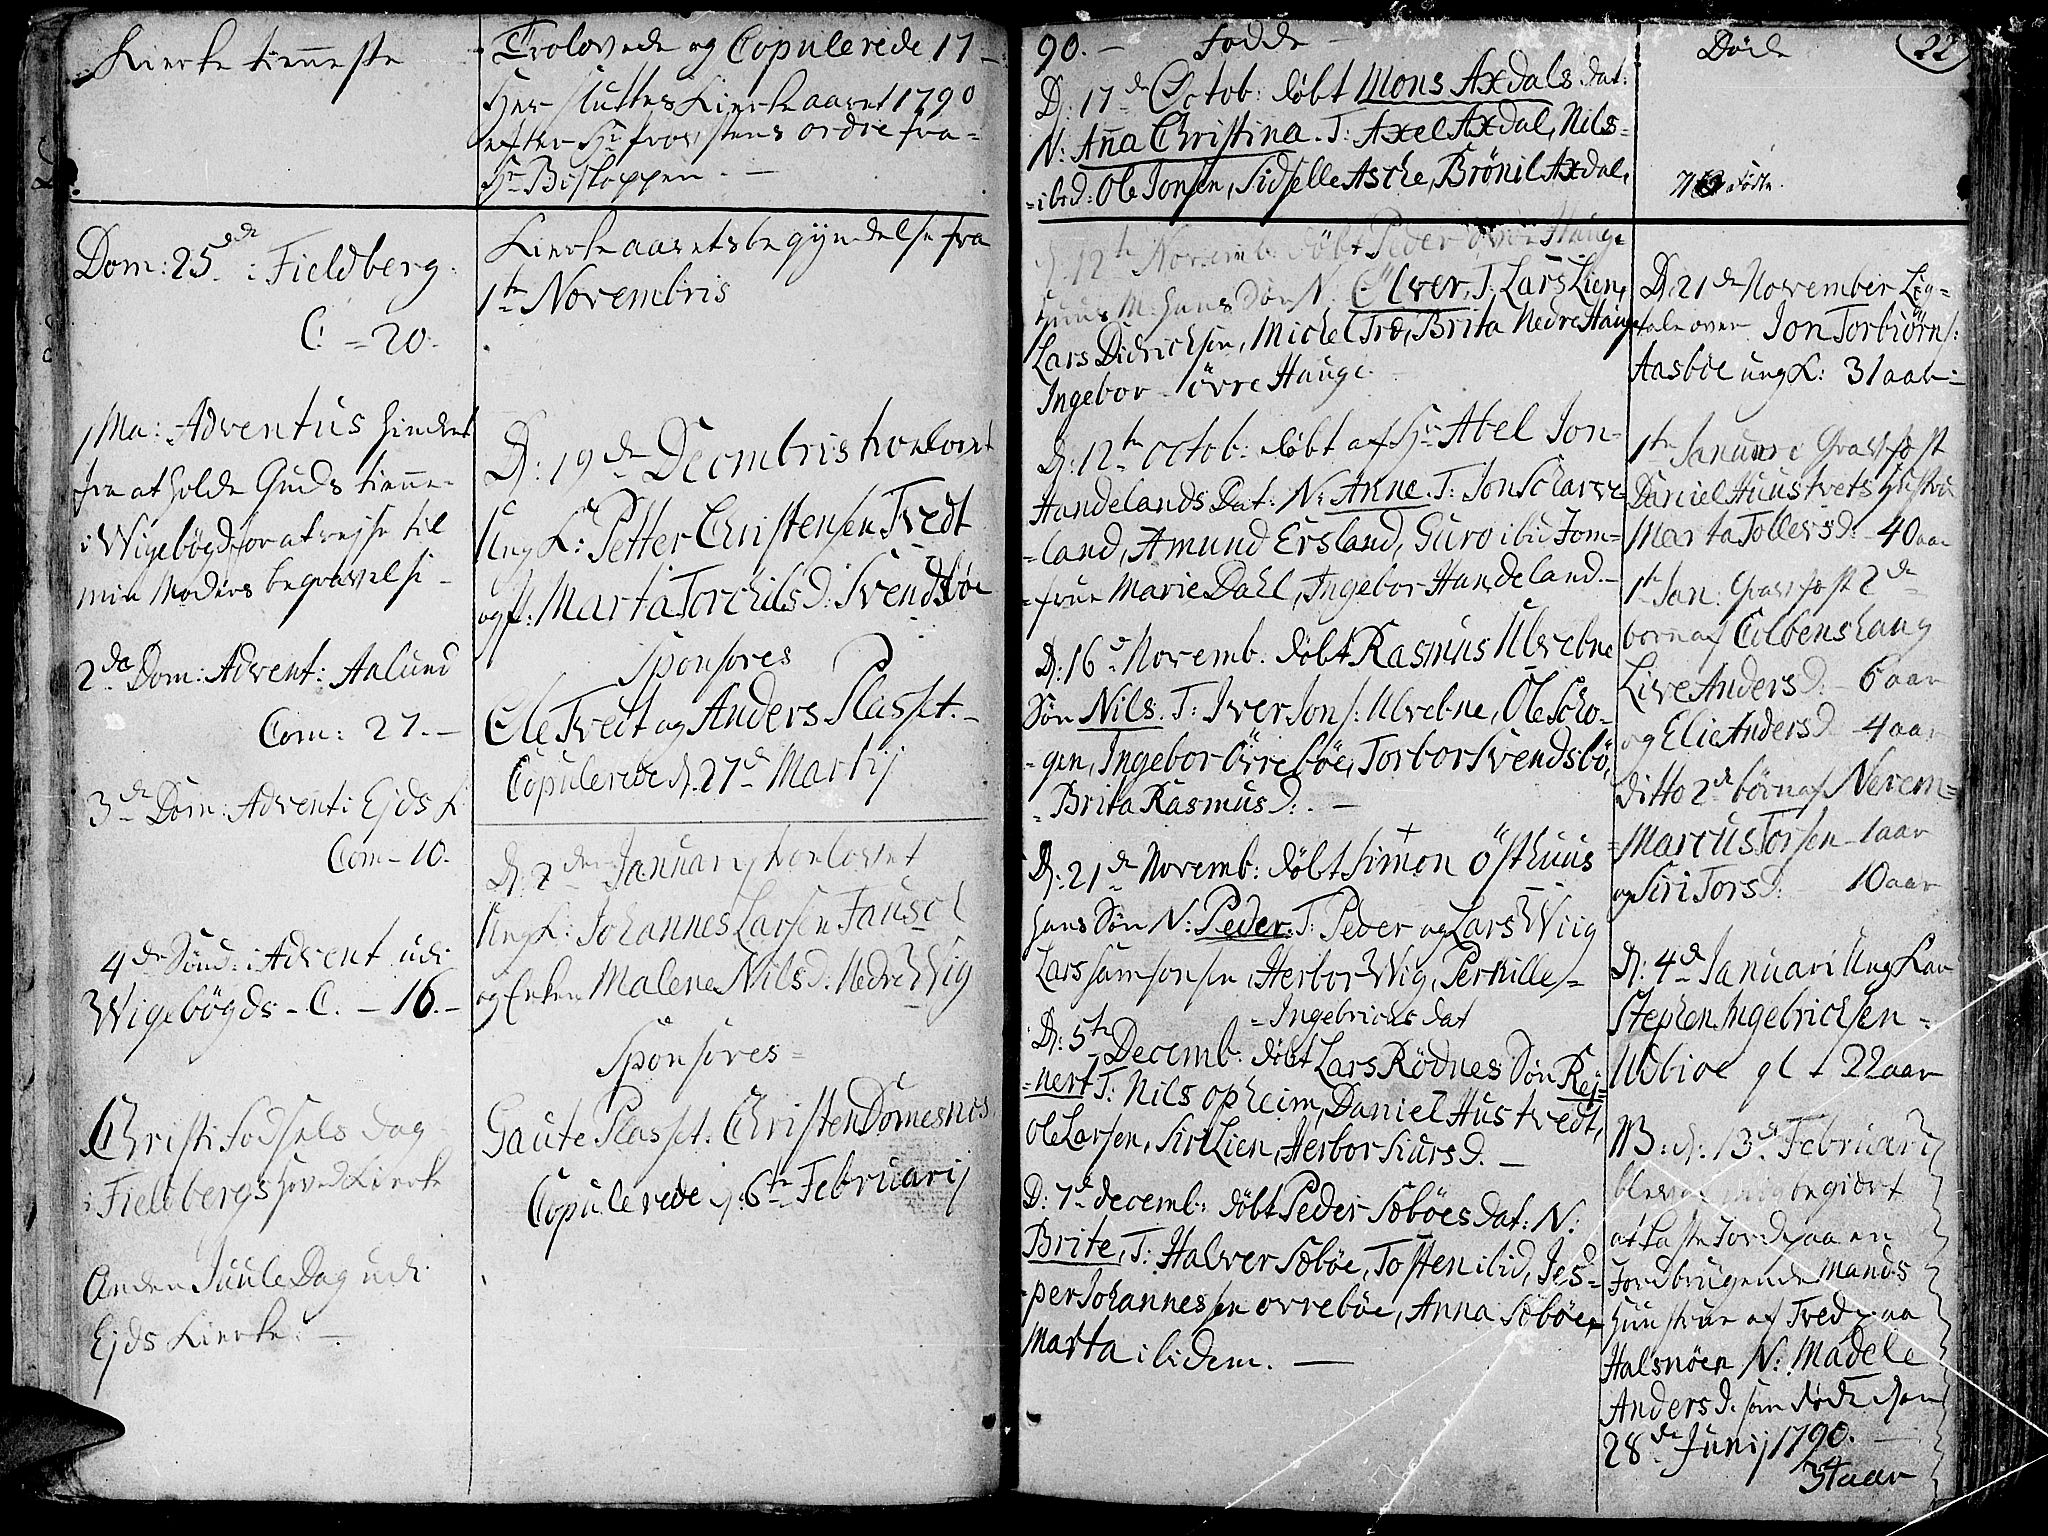 Kierketienneste
Dom: 25de i Fieldberg.
C. = 20.
1 Ma: Adventus hindret
fra at holde Guds tienne-
i Wigebögd for at rejse til
min Moders begravelse -
2da Dom: Advent: Aalund
Com: 27. -
3de Dom: Advent: Ejds k.
Com - 10.
4de Sönd: i Advent udi
Wigebögds - C. - 16. -
Christi Fødsels dag
i Fieldbergs hoved Kierke
Anden Juule Dag udi
Ejds Kierke. -
Trolovede og Copulerede 17-
Her sluttes Kierkeaaret 1790
efter Hr Provstens ordre fra =
Hr Biskoppen. -
Kierkeaarets begÿndelse fra
1te Novembris
D: 19de Decembris trolovet
Ung K: Petter Christensen Tvedt
og P: Marta Torchilsd: Svendsböe
Sponsores
Ole Tvedt og Anders Plasset. -
Copulerede d. 27de Martij
D: 2den Januarij trolovet
Ung K: Johannes Larsen Fausch
og Enken Malene Nilsd: Nedre Wig
Sponsores =
Gaute Plasset. Christen Domesnes
Copulerede d: 6te Februarij
90. - Fødde -
D: 17de Octob: døbt Mons Axdals dat:
N: Anna Christina. T: Axel Axdal, Nils =
= ibid: Ole Jonsen, Sidselle Asche, Brönil Axdal,
D. 12te Novemb. døbt Peder övre Hauge
huus M. hans Søn N. Elver, T. Lars Lien,
Lars Didrichsen, Michel Trö, Brita Nedre Hauge
Ingebor övre Hauge.
D: 12te Octob: døbt af Hr Abel Jon-
Handelands Dat: N: Anne. T: Jon Scharve
= land, Amund Ersland, Guro ibid Jom =
= frue Marie Dahl, Ingebor Handeland. -
D: 16de Novemb. døbt Rasmus Ulvebne
Søn Nils. T: Iver Jons: Ulvebne, Ole Scho-
- gen, Ingebor Övreböe, Torbor Svendsbö,
= Brita Rasmusd: . -
D: 21de Novemb: døbt Simon Östhuus
hans Søn N: Peder. T: Peder og Lars Wiig
Lars Samsonsen, Herbor Wig, Pernille =
= Ingebrichs dat
D: 5te Decemb: døbt Lars Rödnes Søn Rej=
= nert T: Nils opheim, Daniel Hustvedt,
Ole Larsen, Siri Lien, Herbor Siursd. -
D: 7de decemb: døbt Peder Söböes dat: N:
Brite, T: Halver Söböe, Tosten ibid, Jes-
- per Johannessen ovreböe, Anna Söböe,
Marta ibidem. -
Döde
22
D: 21de November Lig-
tale over Jon Torbiörns:
Aasböe ung K: 31 aar =
1te Januari Grav fæst
Daniel Huustvets hustru
Marta Tollersd: - 40 aar
1te Jan: Grav fæst 2de
børn af Colbenshaug
Live Andersd: - 6 aar
og Elie Andersd - 4 aar
ditto 2de börn af Nerem =
= Marcus Torsen - 1 aar
og Siri Torsd: - 10 aar
D: 4de Januari Ung Kar
Stephen Ingebrichsen =
Udbioe gl - 22 aar
NB: d: 13de Februarij
blev begiært
at kaste Jord paa en
Jordbrugende Mands
hustrue af Tvedt paa
Halsnöen N: Madele
Andersd. som döde den
28de Junij 1790. -
34 aar